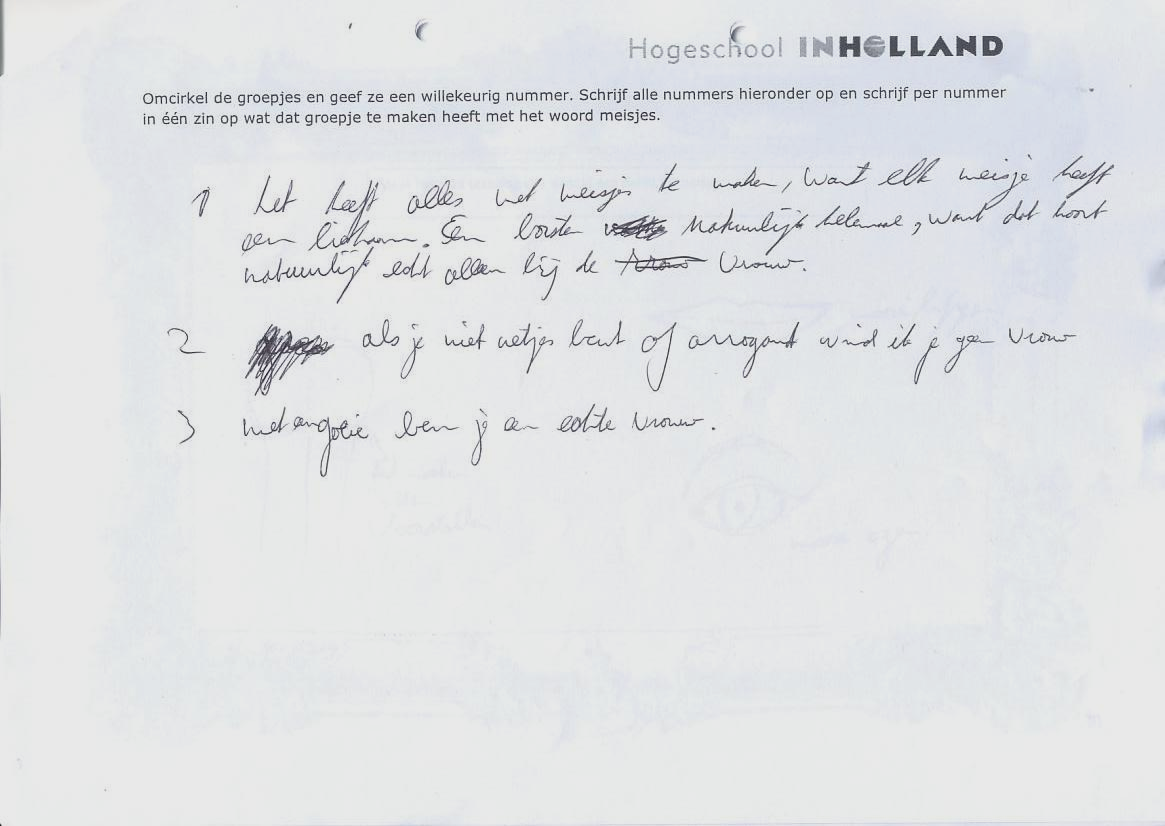 Hogeschool INHOLLAND
Omcirkel de groepjes en geef ze een willekeurig nummer. Schrijf alle nummers hieronder op en schrijf per nummer
in één zin op wat dat groepje te maken heeft met het woord meisjes.
1 het heeft alles met meisjes te maken, want elk meisje heeft
een lichaam. En borsten natuurlijk helemaal, want dat hoort
natuurlijk echt alleen bij de vrouw.
2 als je niet netjes bent of arrogant vind ik je geen vrouw
3 ben je een echte vrouw.